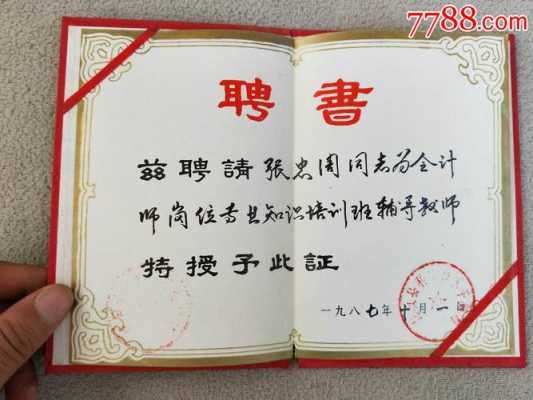 7788.com
聘書
兹聘請張忠周同志为会计
师岗位专业知识培训班辅导教师
特授予此証
一九八七年十月一日